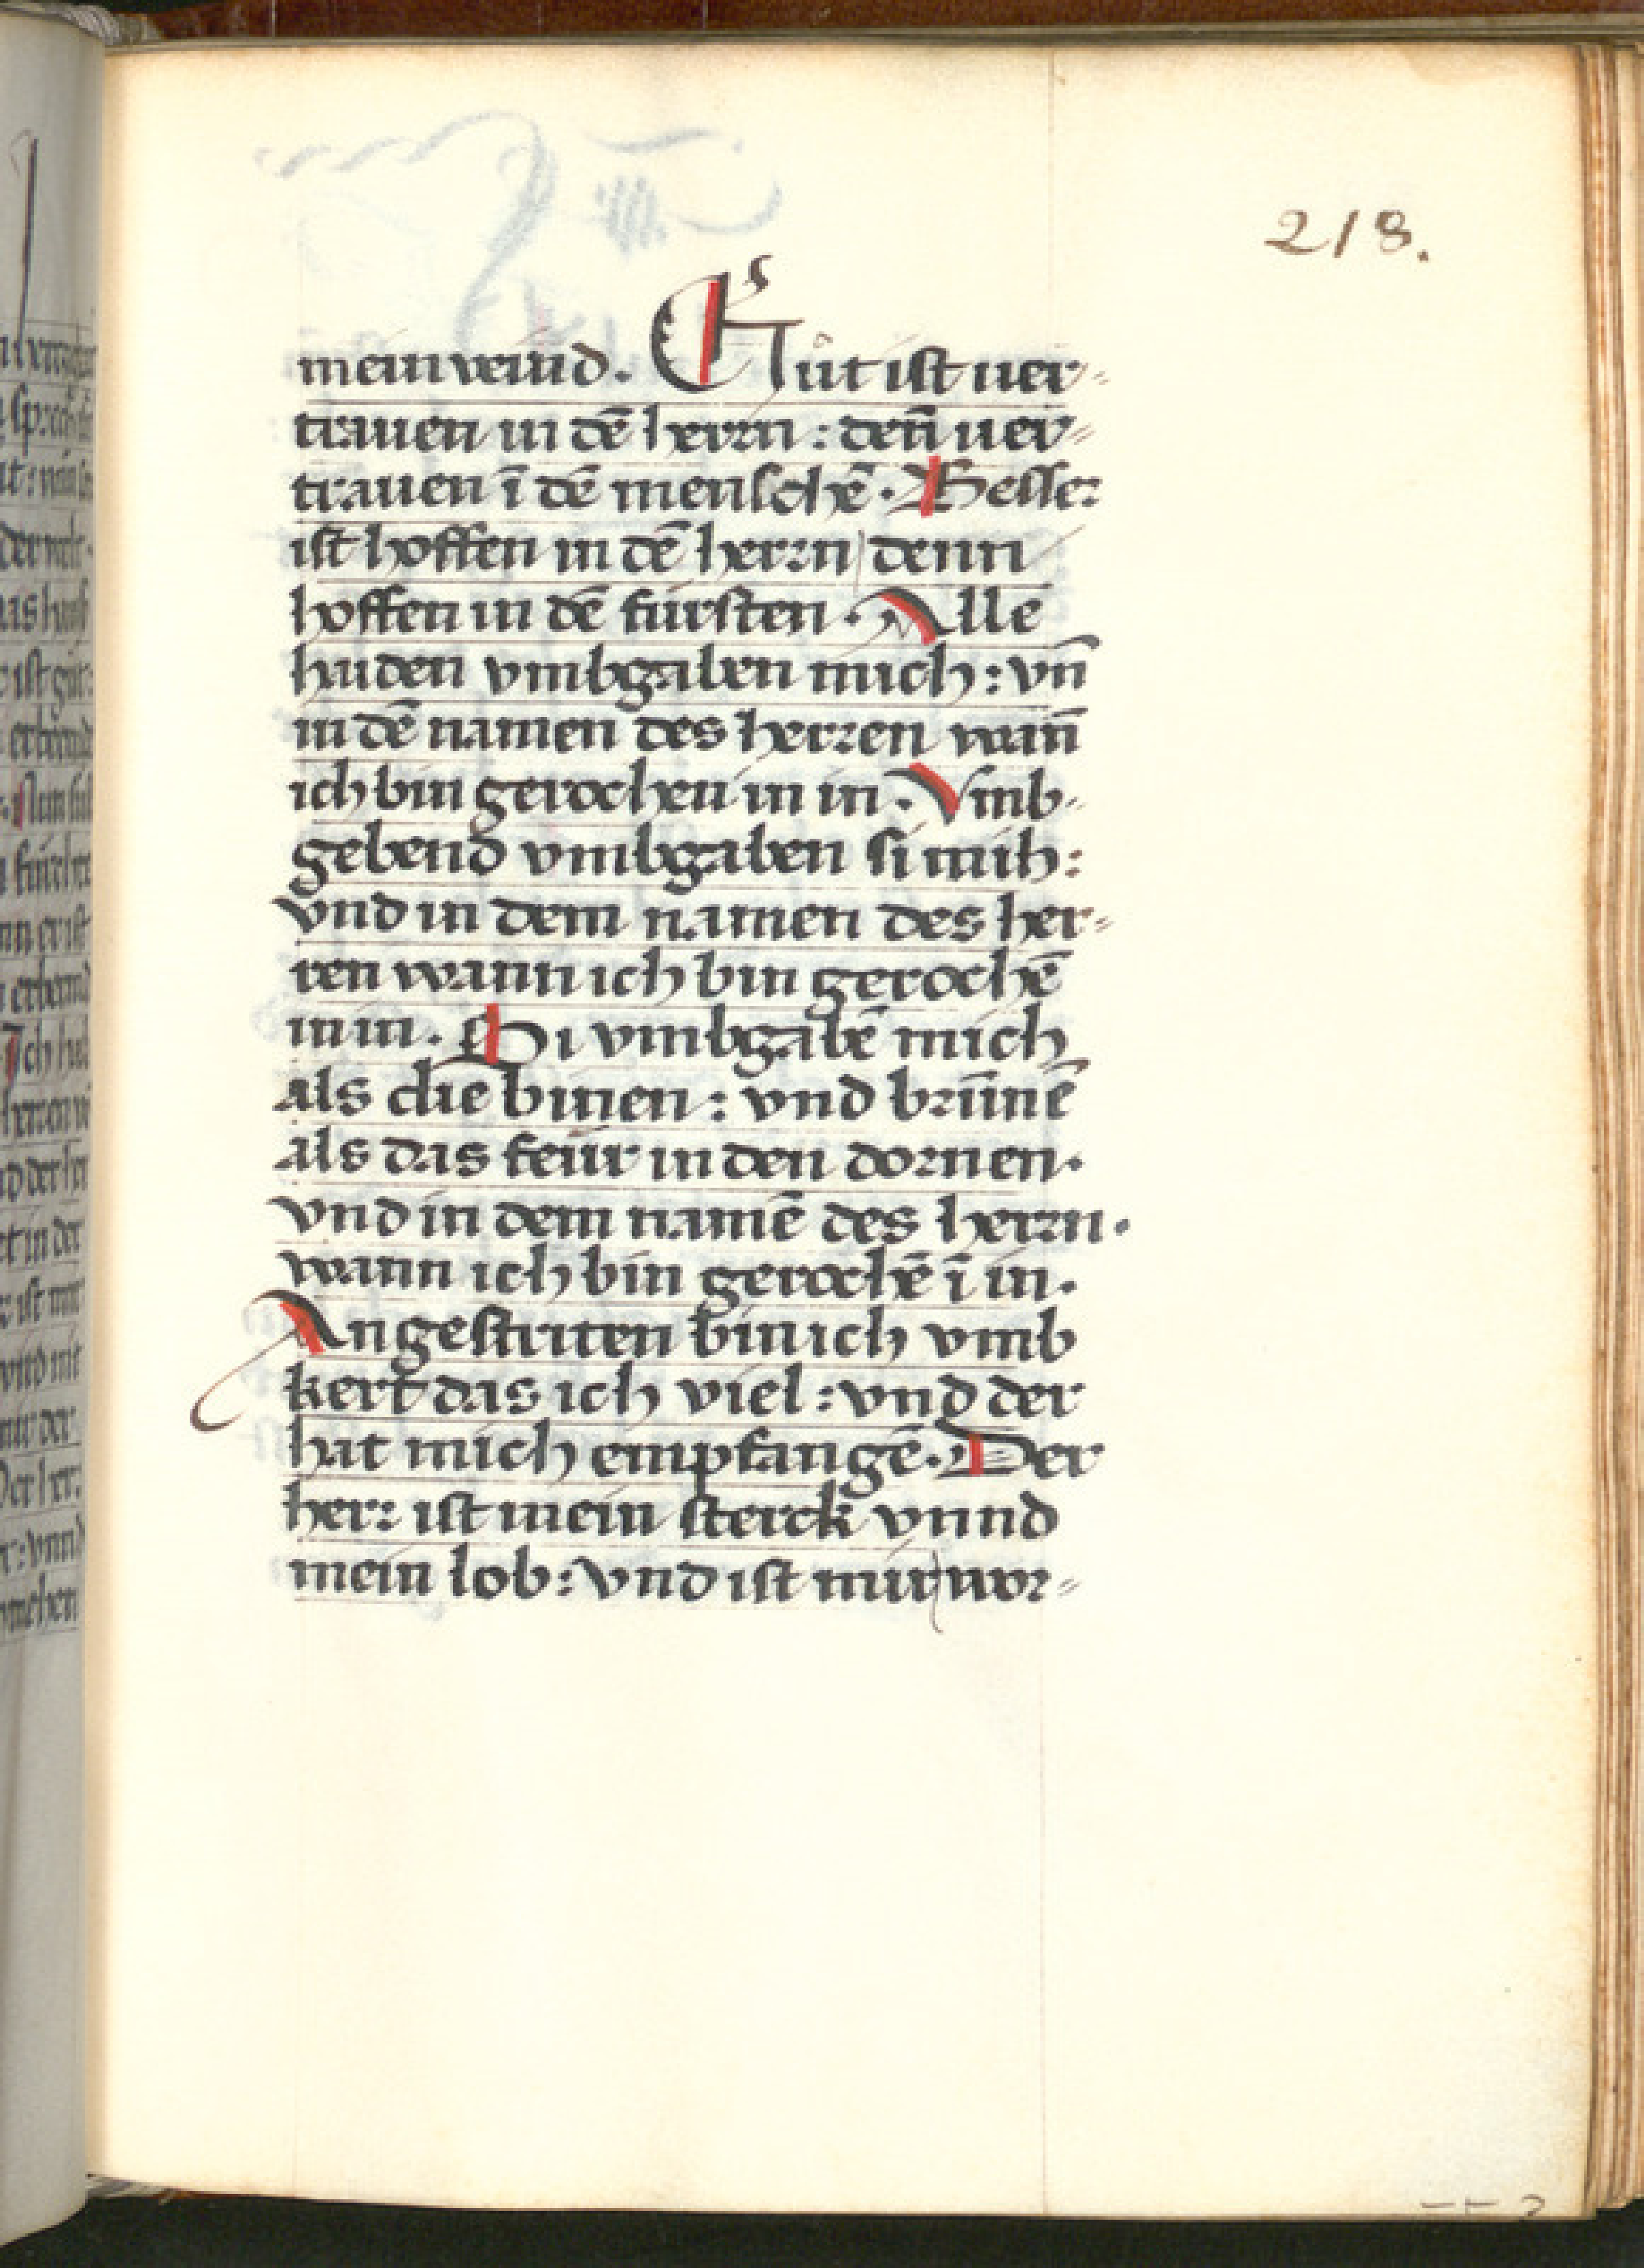 218.
mein veind. Gůt ist uer-
trauen in dē herrn: den̄ uer-
trauen ī dē menschē. Besser
ist hoffen in dē herrn denn
hoffen in dē fürsten. Alle
haiden vmbgaben mich: vn̄
in dē namen des herren wan̄
ich bin gerochen in in. Vmb-
gebend vmbgaben si mih:
vnd in dem namen des her-
ren wann ich bin gerochē
in in. Si vmbgabē mich
als die binen: vnd brūnē
als das feür in den dornen.
vnd in dem namē des herrn.
wann ich bin gerochē ī in.
Angestriten bin ich vmb
kert das ich viel: vnd der
hat mich empfangē. Der
herr ist mein sterck vnnd
mein lob: vnd ist mir wor-